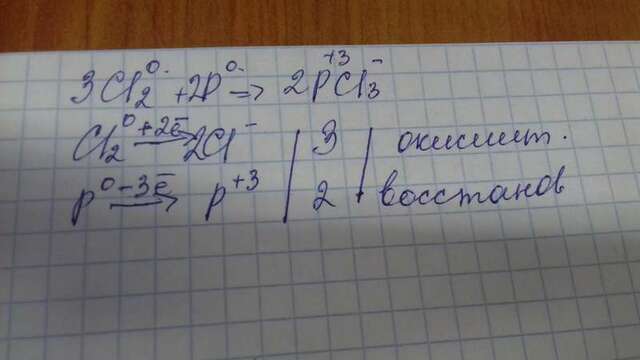 3Cl₂⁰ + 2P⁰ → 2P⁺³Cl₃⁻
Cl₂⁰ +2ē → 2Cl⁻ | 3 | окислит.
P⁰ -3ē → P⁺³ | 2 | восстанов